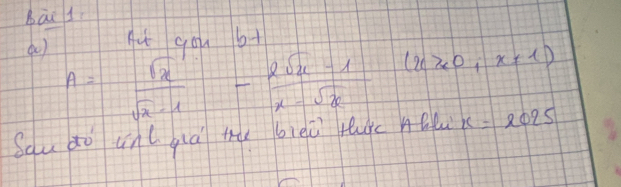 Bài 1.
a) Rút gọn bt
A = \frac{\sqrt{x}}{\sqrt{x} - 1} - \frac{2\sqrt{x} - 1}{x - \sqrt{x}} (x ≥ 0, x ≠ 1)
Sau đó tính giá trị biểu thức A khi x = 2025